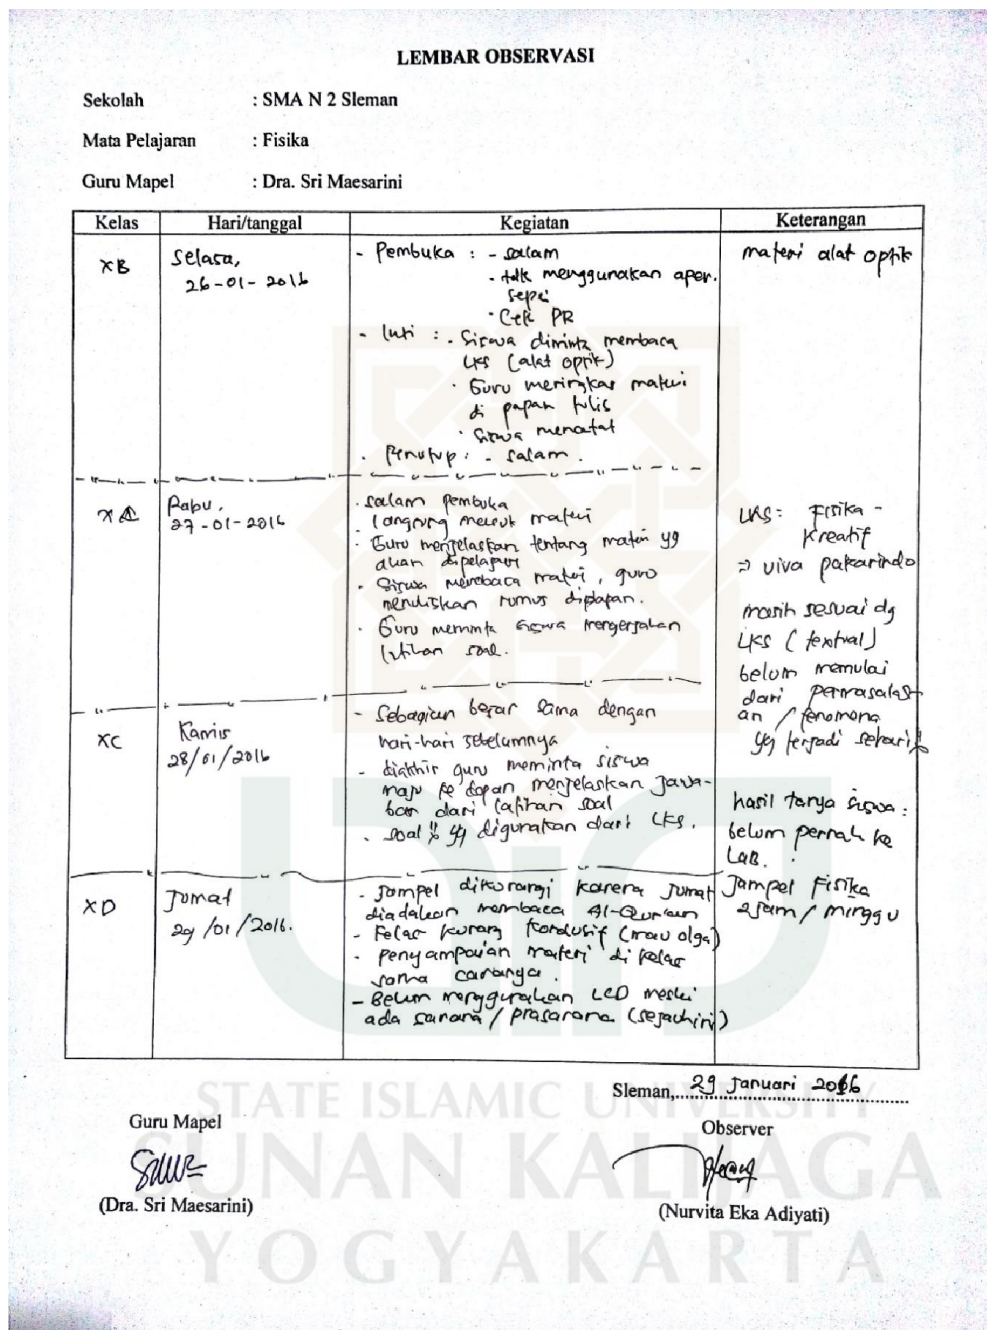 LEMBAR OBSERVASI
Sekolah : SMA N 2 Sleman
Mata Pelajaran : Fisika
Guru Mapel : Dra. Sri Maesarini
Kelas Hari/tanggal Kegiatan Keterangan
XB
Selasa,
26-01-2016
- Pembuka : - salam
- tdk menggunakan aper.
sepsi
- Cek PR
- Inti : - Siswa diminta membaca
LKS (alat optik)
- Guru meringkas materi
di papan tulis
- Siswa mencatat
- Penutup : - salam.
materi alat optik
XA
Rabu,
27-01-2016
- salam pembuka
- langsung masuk materi
- Guru menjelaskan tentang materi yg
akan dipelajari
- Siswa membaca materi, guro
menuliskan rumus dipapan.
- Guru meminta siswa mengerjakan
latihan soal.
LKS: Fisika -
Kreatif
⇒ viva pakarindo
masih sesuai dg
LKS (textual)
belum memulai
dari permasalah-
an / fenomena
yg terjadi sehari"
XC
Kamis
28/01/2016
- Sebagian besar sama dengan
hari-hari sebelumnya
- diakhir guru meminta siswa
maju ke depan menjelaskan jawa-
ban dari latihan soal
- soal" yg digunakan dari LKS.
hasil tanya siswa :
belum pernah ke
LAB.
XD
Jumat
29/01/2016.
- Jampel dikurangi karena Jumat
diadakan membaca Al-Quran
- Kelas kurang kondusif (mau olga)
- penyampaian materi di kelas
sama caranya.
- Belum menggunakan LCD meski
ada sarana / prasarana (sejauhini)
Jampel Fisika
2jam / minggu
Sleman, 29 Januari 2016
Guru Mapel
(Dra. Sri Maesarini)
Observer
(Nurvita Eka Adiyati)
STATE ISLAMIC UNIVERSITY
SUNAN KALIJAGA
YOGYAKARTA